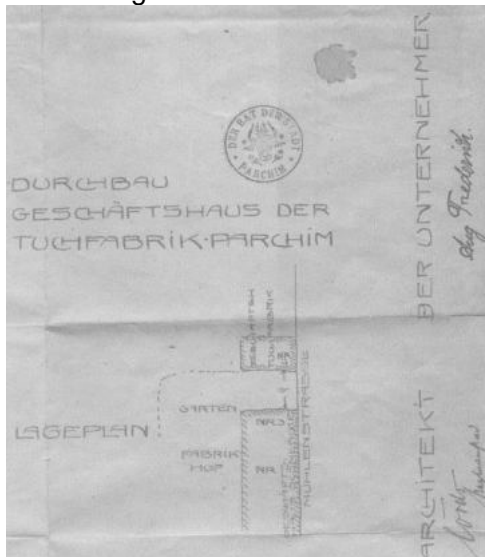 DER RAT DER STADT
PARCHIM
DURCHBAU
GESCHÄFTSHAUS DER
TUCHFABRIK·PARCHIM
LAGEPLAN:
GARTEN
NR.3
FABRIK
HOF
NR
MÜHLENSTRASSE
TUCHFABRIK
DER UNTERNEHMER
Aug Frederich.
ARCHITEKT